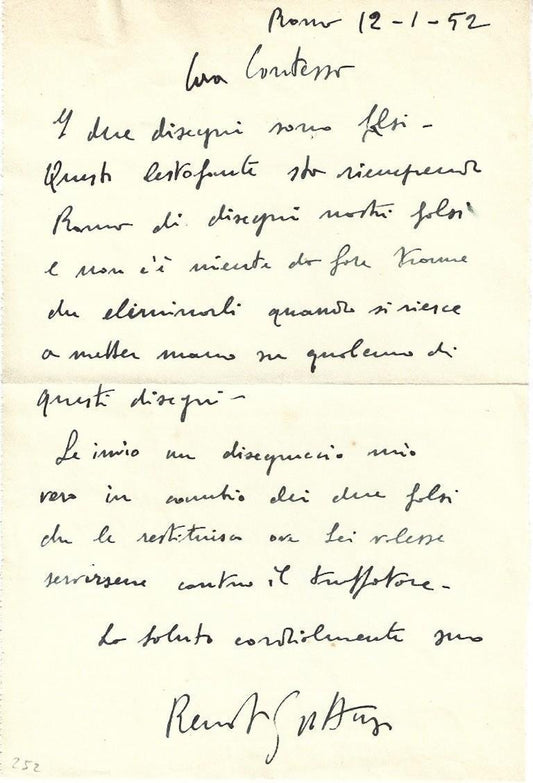 Roma 12-1-52
Cara Contessa
I due disegni sono falsi -
Questo lestofante sta riempiendo
Roma di disegni nostri falsi
e non c'è niente da fare tranne
che eliminarli quando si riesce
a metter mano su qualcuno di
questi disegni -
Le invio un disegnuccio mio
vero in cambio dei due falsi
che le restituisco ove Lei volesse
servirsene contro il truffatore -
La saluto cordialmente suo
Renato Guttuso
252